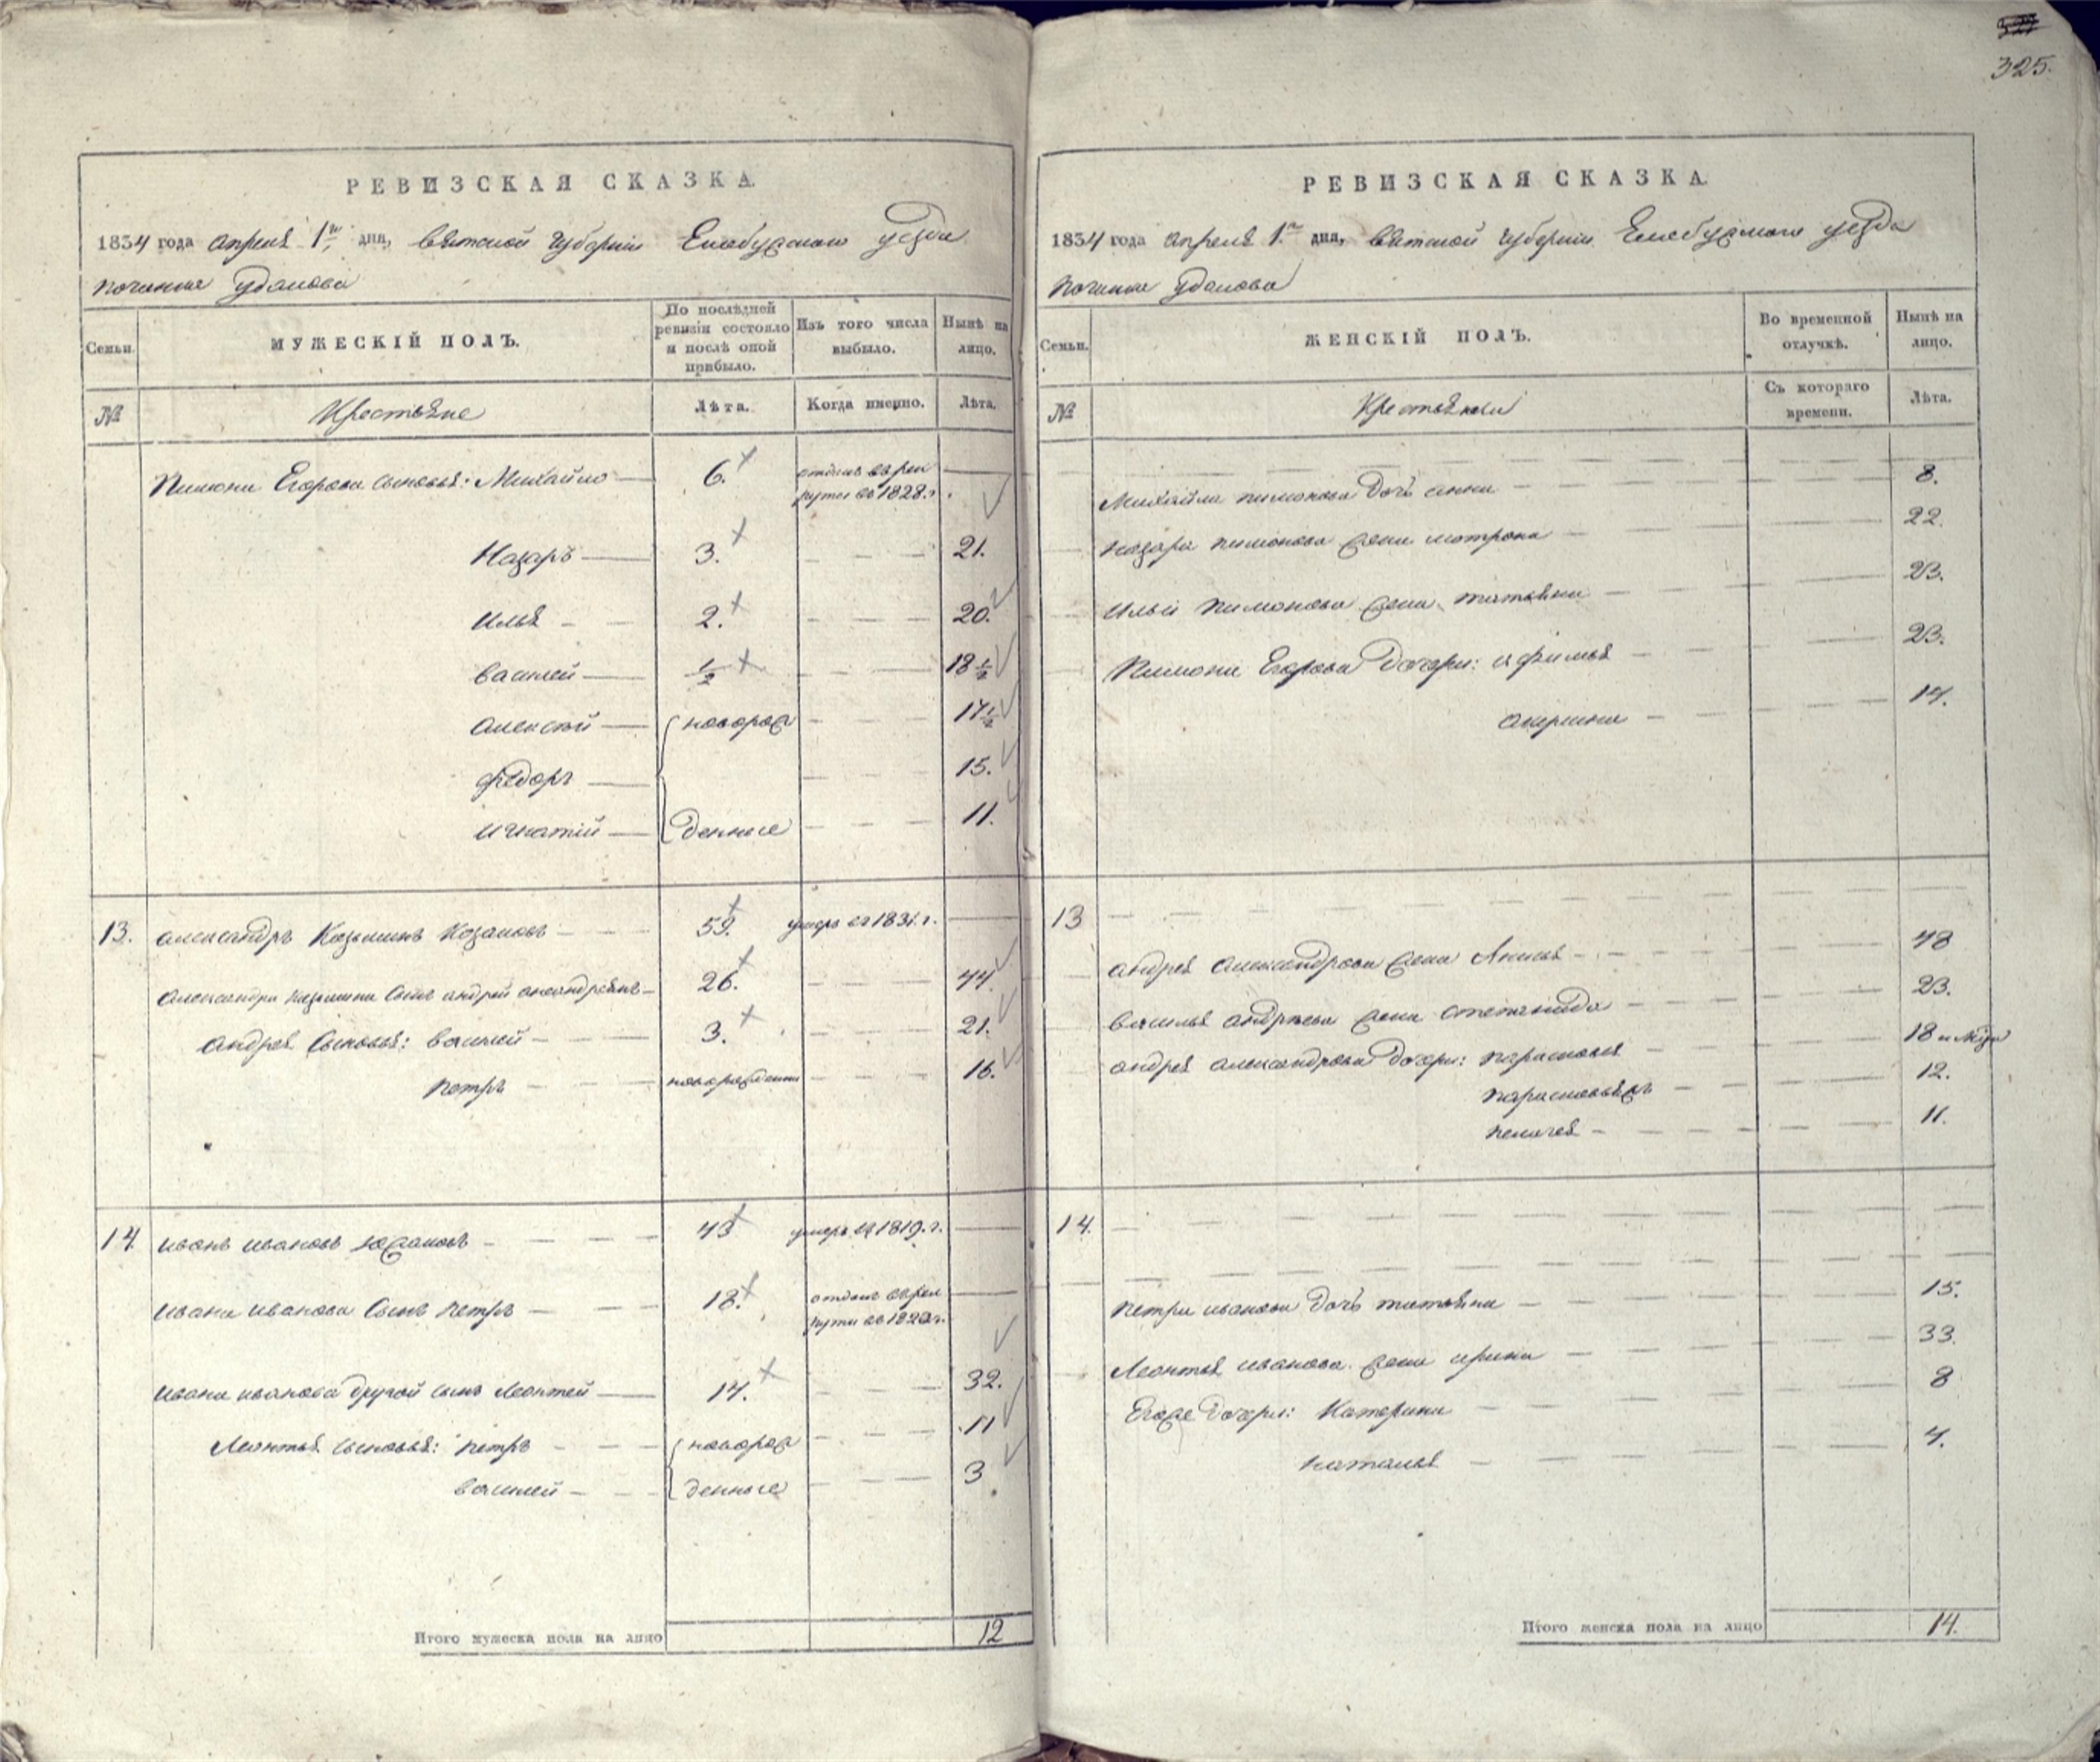 325.
РЕВИЗСКАЯ СКАЗКА.
1834 года апреля 1го дня, вятской губернии Елабужскаго уезда
починка
Семьи.
МУЖЕСКІЙ ПОЛЪ.
По послѣдней ревизіи состояло и послѣ оной прибыло.
Изъ того числа выбыло.
Нынѣ на лицо.
№
Крестьяне
Лѣта.
Когда именно.
Лѣта.
Пимона Егорова сыновья: Михайло 6. отданъ въ рек
руты въ 1828.г.
Назаръ 3. 21.
Илья 2. 20.
василей 1/2 18 1/2
алексѣй новорож 17 1/2
федоръ 15.
игнатій денные 11.
13. александръ Козминъ 59. умеръ въ 1831.г.
александра козмина сынъ андрей 26. 44.
андрея сыновья: василей 3. 21.
петръ новорожденны 16.
14. иванъ ивановъ 43 умеръ въ 1819.г.
ивана иванова сынъ петръ 18. отданъ въ рек
руты въ
ивана иванова другой сынъ леонтей 14. 32.
леонтья сыновья: петръ новорож 11
василей денные 3
Итого мужеска пола на лицо 12
РЕВИЗСКАЯ СКАЗКА
1834 года апреля 1го дня, вятской губернии Елабужскаго уезда
починка
Семьи.
ЖЕНСКІЙ ПОЛЪ.
Во временной отлучкѣ.
Нынѣ на лицо.
№
Крестьянки
Съ котораго времени.
Лѣта.
Михайла пимонова дочь анна 8.
назара пимонова жена мотрона 22.
ильи пимонова жена татьяна 23.
Пимона Егорова дочери: афимья 23.
акулина 14.
13
андрея александрова жена 48
василья андреева жена степанида 23.
андрея александрова дочери: парасковья 18
парасковья жъ 12.
пелагея 11.
14.
петра иванова дочь татьяна 15.
леонтья иванова жена ирина 33.
Егоже дочери: Катерина 8
наталья 4.
Итого женска пола на лицо 14.